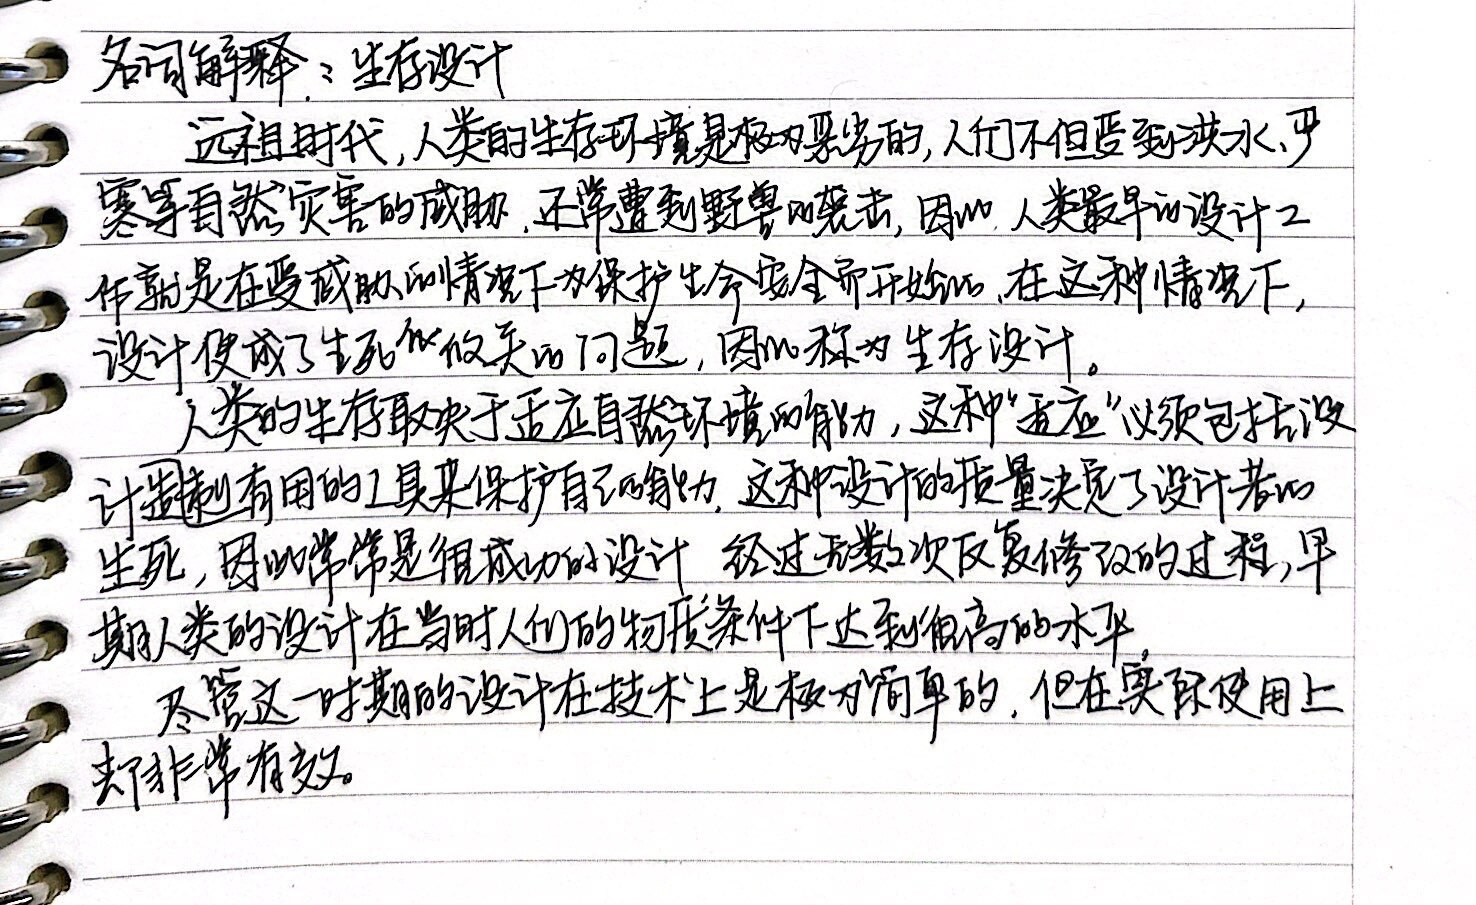 名词解释：生存设计
远祖时代，人类的生存环境是极为恶劣的，人们不但受到洪水、严
寒等自然灾害的威胁，还常遭到野兽的袭击，因此，人类最早的设计工
作就是在受威胁的情况下为保护生命安全而开始的，在这种情况下，
设计便成了生死攸关的问题，因此称为生存设计。
人类的生存取决于适应自然环境的能力，这种“适应”必须包括设
计制造有用的工具来保护自己的能力，这种设计的质量决定了设计者的
生死，因此常常是很成功的设计 经过无数次反复修改的过程，早
期人类的设计在当时人们的物质条件下达到很高的水平，
尽管这一时期的设计在技术上是极为简单的，但在实际使用上
却非常有效。